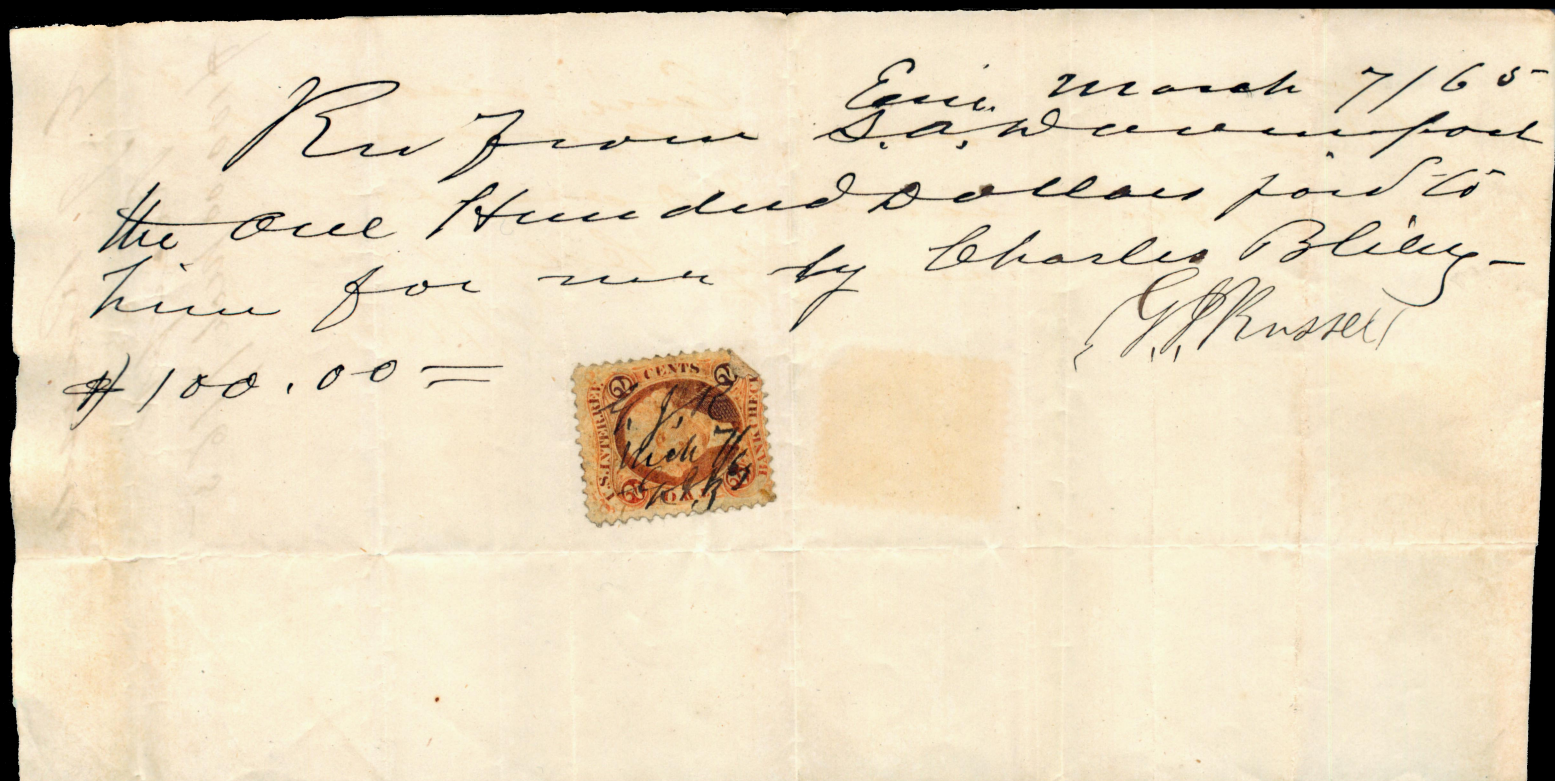 Erie March 7/65
Rec from S. A. Davenport
the One Hundred Dollars paid to
him for me by Charles
G. J. Russell
$100.00
2 CENTS 2
U.S. INTER. REV.
BANK CHECK
G. J. R
Mch 7/65